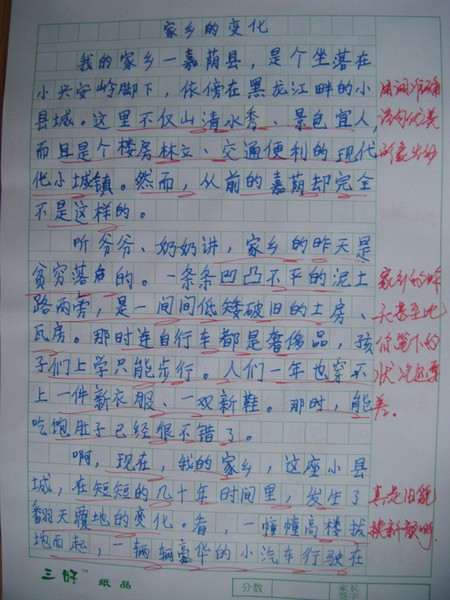 家乡的变化
我的家乡—嘉荫县，是个坐落在
小兴安岭脚下，依傍在黑龙江畔的小
县城。这里不仅山清水秀、景色宜人，
而且是个楼房林立、交通便利的现代
化小城镇。然而，从前的嘉荫却完全
不是这样的。
听爷爷、奶奶讲，家乡的昨天是
贫穷落后的。一条条凹凸不平的泥土
路两旁，是一间间低矮破旧的土房、
瓦房。那时连自行车都是奢侈品，孩
子们上学只能步行。人们一年也穿不
上一件新衣服、一双新鞋。那时，能
吃饱肚子已经很不错了。
啊，现在，我的家乡，这座小县
城，在短短的几十年时间里，发生了
翻天覆地的变化。看，一幢幢高楼拔
地而起，一辆辆豪华的小汽车行驶在
用词准确
语句优美
家乡的昨
天甚至比
你笔下的
状况还要
差。
真是旧貌
换新颜啊
三好 纸品
分数
家长
签字